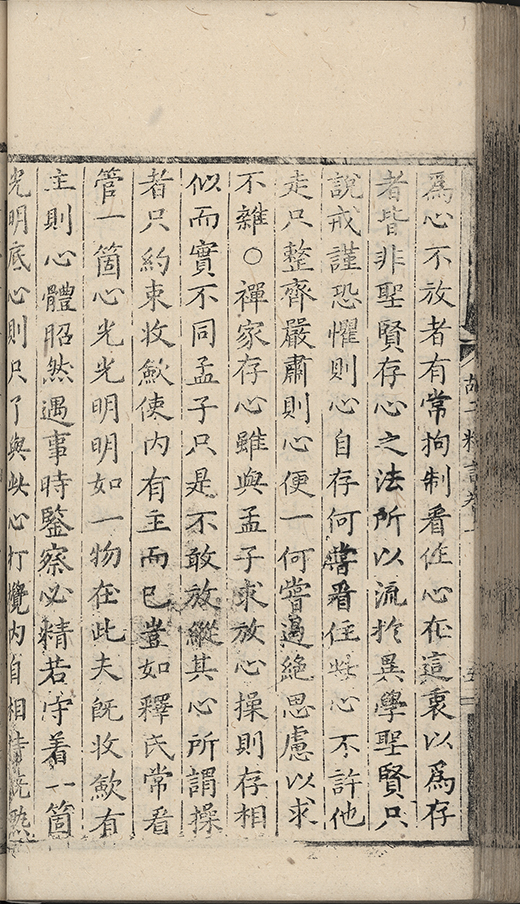 爲心不放者有常拘制看住心在這裏以爲存
者皆非聖賢存心之法所以流於異學聖賢只
說戒謹恐懼則心自存何嘗看住此心不許他
走只整齊嚴肅則心便一何嘗遏絕思慮以求
不雜○禪家存心雖與孟子求放心操則存相
似而實不同孟子只是不敢放縱其心所謂操
者只約束收歛使內有主而已豈如釋氏常看
管一箇心光光明明如一物在此夫旣收歛有
主則心體昭然遇事時鑒察必精若守着一箇
光明底心則只了與此心打攪內自相
胡子粹言卷